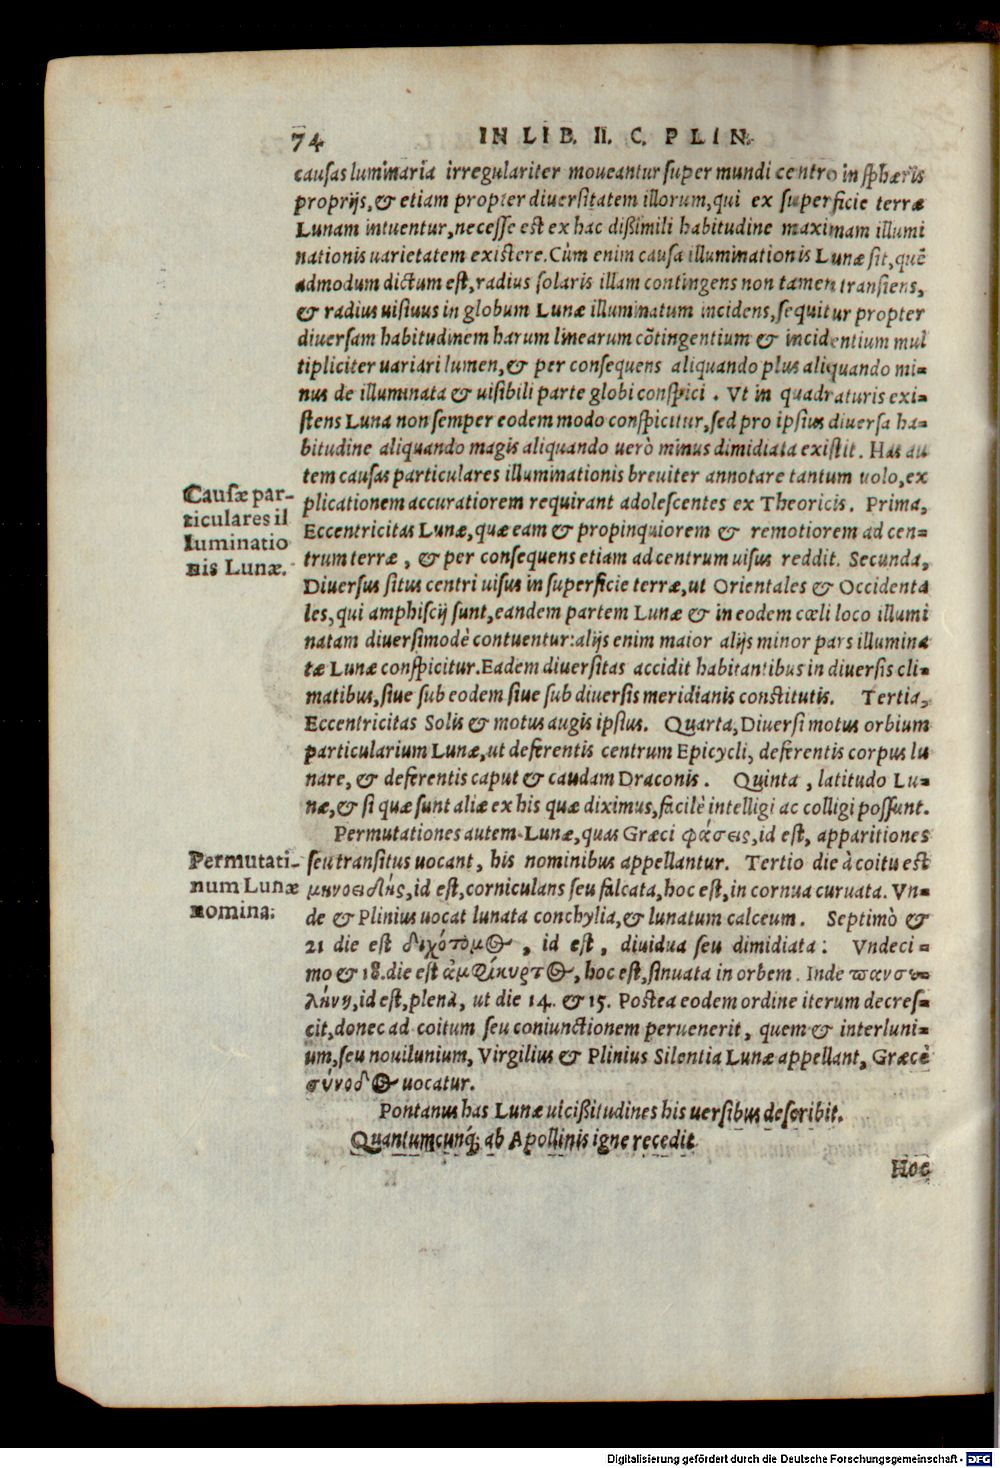 74 IN LIB. II. C. PLIN.
causas luminaria irregulariter moveantur super mundi centro in sphæris
proprijs, & etiam propter diuersitatem illorum, qui ex superficie terræ
Lunam intuentur, necesse est ex hac dißimili habitudine maximam illumi
nationis uarietatem existere. Cùm enim causa illuminationis Lunæ sit, quē
admodum dictum est, radius solaris illam contingens non tamen transiens,
& radius uisiuus in globum Lunæ illuminatum incidens, sequitur propter
diuersam habitudinem harum linearum cõtingentium & incidentium mul
tipliciter uariari lumen, & per consequens aliquando plus aliquando mi=
nus de illuminata & uisibili parte globi conspici. Vt in quadraturis exi=
stens Luna non semper eodem modo conspicitur, sed pro ipsius diuersa ha=
bitudine aliquando magis aliquando uerò minus dimidiata existit. Has au
tem causas particulares illuminationis breuiter annotare tantum uolo, ex
plicationem accuratiorem requirant adolescentes ex Theoricis. Prima,
Eccentricitas Lunæ, quæ eam & propinquiorem & remotiorem ad cen=
trum terræ, & per consequens etiam ad centrum uisus reddit. Secunda,
Diuersus situs centri uisus in superficie terræ, ut Orientales & Occidenta
les, qui amphiscij sunt, eandem partem Lunæ & in eodem cœli loco illumi
natam diuersimodè contuentur: alijs enim maior alijs minor pars illumina
tæ Lunæ conspicitur. Eadem diuersitas accidit habitantibus in diuersis cli=
matibus, siue sub eodem siue sub diuersis meridianis constitutis. Tertia,
Eccentricitas Solis & motus augis ipsius. Quarta, Diuersi motus orbium
particularium Lunæ, ut deferentis centrum Epicycli, deferentis corpus lu
nare, & deferentis caput & caudam Draconis. Quinta, latitudo Lu=
næ, & si quæ sunt aliæ ex his quæ diximus, facilè intelligi ac colligi possunt.
Causæ par-
ticulares il
luminatio
nis Lunæ.
Permutationes autem Lunæ, quas Græci φάσεις, id est, apparitiones
seu transitus uocant, his nominibus appellantur. Tertio die à coitu est
μηνοειδὴς, id est, corniculans seu falcata, hoc est, in cornua curuata. Vn=
de & Plinius uocat lunata conchylia, & lunatum calceum. Septimò &
21 die est διχότομος, id est, diuidua seu dimidiata: Vndeci=
mo & 18. die est ἀμφίκυρτος, hoc est, sinuata in orbem. Inde πανσε=
λήνη, id est, plena, ut die 14. & 15. Postea eodem ordine iterum decres=
cit, donec ad coitum seu coniunctionem peruenerit, quem & interluni=
um, seu nouilunium, Virgilius & Plinius Silentia Lunæ appellant, Græcè
σύνοδος uocatur.
Permutati-
num Lunæ
nomina.
Pontanus has Lunæ uicißitudines his uersibus describit.
Quantumcunq; ab Apollinis igne recedit
Hoc
Digitalisierung gefördert durch die Deutsche Forschungsgemeinschaft - DFG